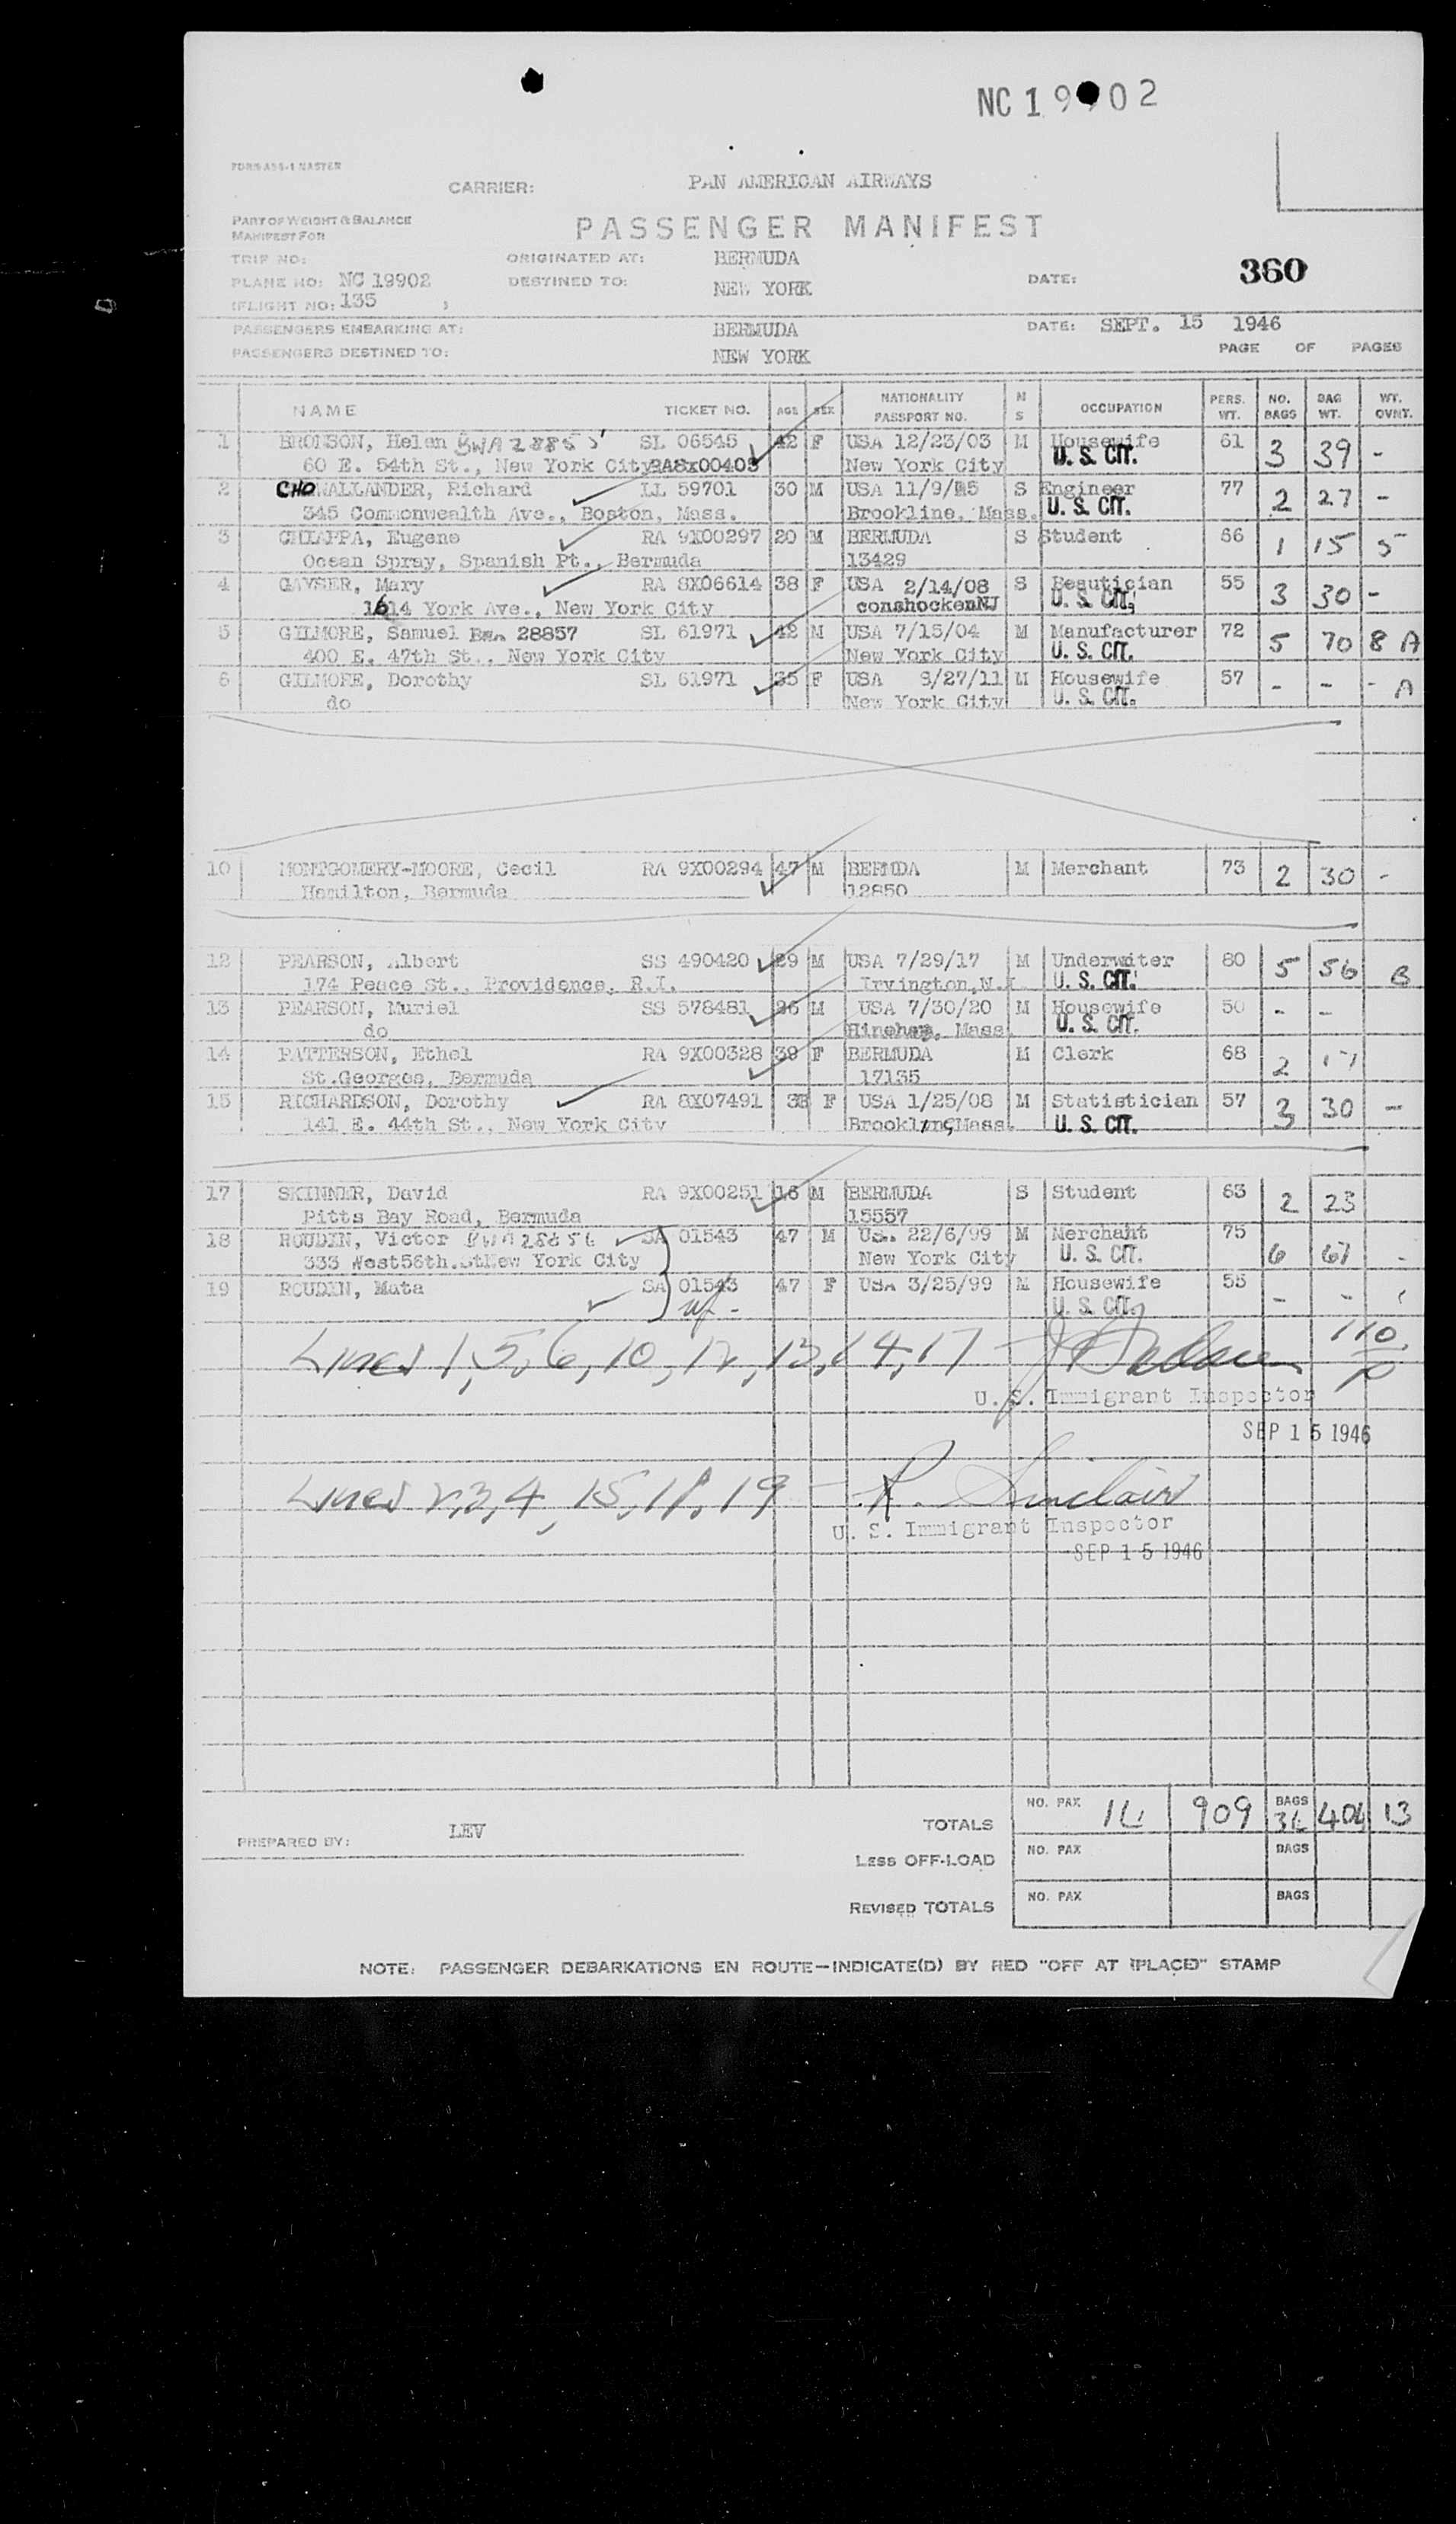 NC 19902
FORM ASS-1 MASTER
CARRIER: PAN AMERICAN AIRWAYS
PART OF WEIGHT & BALANCE
MANIFEST FOR
PASSENGER MANIFEST
TRIP NO: ORIGINATED AT: BERMUDA
PLANE NO: NC 19902 DESTINED TO: NEW YORK DATE: 360
(FLIGHT NO: 135 )
PASSENGERS EMBARKING AT: BERMUDA DATE: SEPT. 15 1946
PASSENGERS DESTINED TO: NEW YORK PAGE OF PAGES
NAME TICKET NO. AGE SEX NATIONALITY PASSPORT NO. M S OCCUPATION PERS. WT. NO. BAGS BAG WT. WT. OVNT.
1 BRONSON, Helen BWA 28855 SL 06545 42 F USA 12/23/03 M Housewife 61 3 39 -
60 E. 54th St., New York City RA8x00403 New York City U. S. CIT.
2 CHO WALLANDER, Richard LL 59701 30 M USA 11/9/15 S Engineer 77 2 27 -
345 Commonwealth Ave., Boston, Mass. Brookline, Mass. U. S. CIT.
3 CHIAPPA, Eugene RA 9X00297 20 M BERMUDA S Student 66 1 15 5
Ocean Spray, Spanish Pt., Bermuda 13429
4 GAYSER, Mary RA 8X06614 38 F USA 2/14/08 S Beautician 55 3 30 -
1614 York Ave., New York City conshockenNJ U. S. CIT.
5 GILMORE, Samuel Bwa 28857 SL 61971 42 M USA 7/15/04 M Manufacturer 72 5 70 8 A
400 E. 47th St., New York City New York City U. S. CIT.
6 GILMORE, Dorothy SL 61971 35 F USA 9/27/11 M Housewife 57 - - - A
do New York City U. S. CIT.
10 MONTGOMERY-MOORE, Cecil RA 9X00294 47 M BERMDA M Merchant 73 2 30 -
Hamilton, Bermuda 12850
12 PEARSON, Albert SS 490420 29 M USA 7/29/17 M Underwater 80 5 56 B
174 Peace St., Providence, R.I. Irvington, N.J U. S. CIT.
13 PEARSON, Muriel SS 578481 26 M USA 7/30/20 M Housewife 50 - -
do Hingham, Mass. U. S. CIT.
14 PATTERSON, Ethel RA 9X00328 39 F BERMUDA M Clerk 68 2 17
St.Georges, Bermuda 17135
15 RICHARDSON, Dorothy RA 8X07491 38 F USA 1/25/08 M Statistician 57 3 30 -
141 E. 44th St., New York City Mass. U. S. CIT.
17 SKINNER, David RA 9X00251 16 M BERMUDA S Student 63 2 23
Pitts Bay Road, Bermuda 15557
18 ROUDIN, Victor BWA 28856 SA 01543 47 M Usa 22/6/99 M Merchant 75 6 67 -
333 West56th.StNew York City New York City U. S. CIT.
19 ROUDIN, Mata SA 01543 47 F USA 3/25/99 M Housewife 55 - -
U. S. CIT.
Lines 1, 5, 6, 10, 12, 13, 14, 17 - 110
U. S. Immigrant Inspector
SEP 15 1946
Lines 2, 3, 4, 15, 18, 19 - R. Sinclair
U. S. Immigrant Inspector
SEP 15 1946
TOTALS NO. PAX 14 909 BAGS 34 404 13
PREPARED BY: LEV
LESS OFF-LOAD NO. PAX BAGS
REVISED TOTALS NO. PAX BAGS
NOTE: PASSENGER DEBARKATIONS EN ROUTE—INDICATE(D) BY RED "OFF AT (PLACE)" STAMP